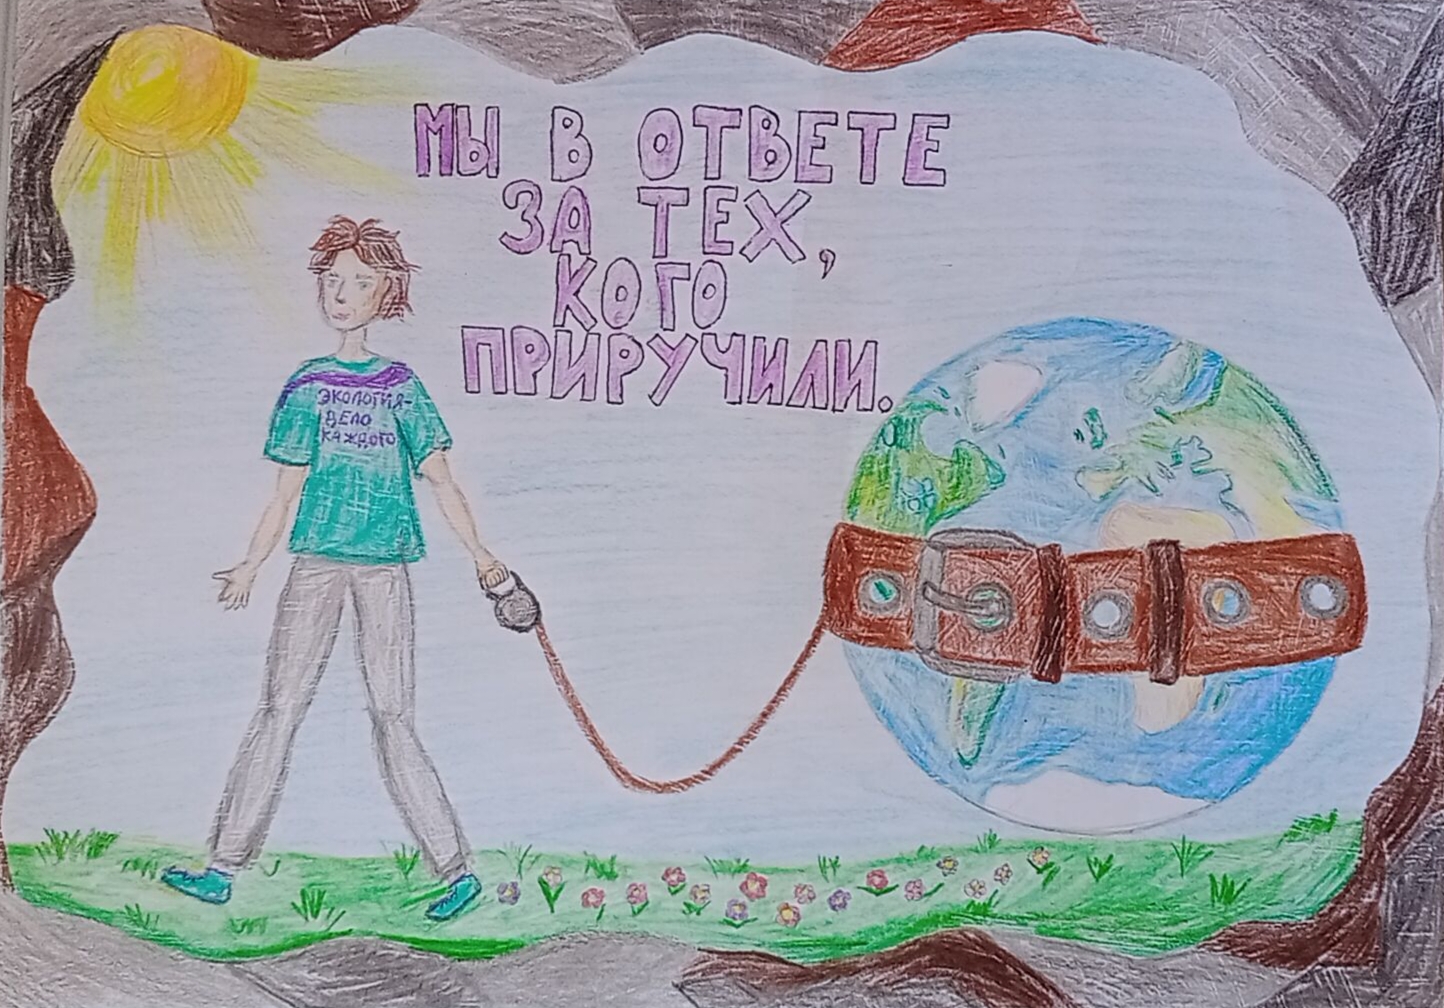 МЫ В ОТВЕТЕ
ЗА ТЕХ,
КОГО
ПРИРУЧИЛИ.
ЭКОЛОГИЯ-
ДЕЛО
КАЖДОГО